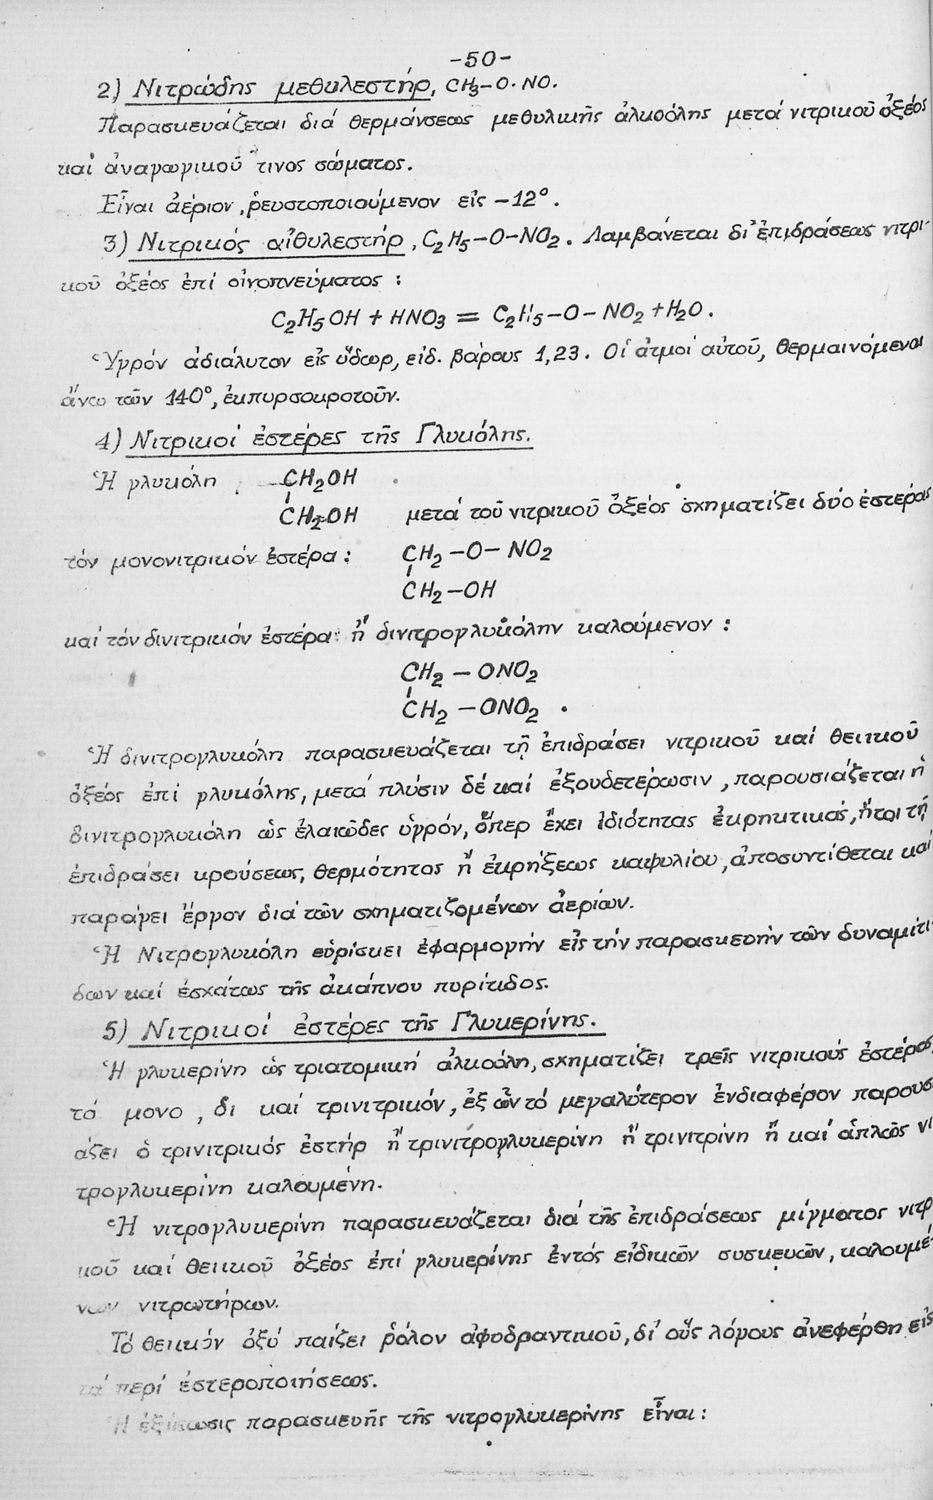 -50-
2) Νιτρώδης μεθυλεστήρ, CH3-O·NO.
Παρασκευάζεται διά θερμάνσεως μεθυλικῆς ἀλκοόλης μετά νιτρικοῦ ὀξέος
καί ἀναγωγικοῦ τινος σώματος.
Εἶναι ἀέριον, ῥευστοποιούμενον εἰς -12°.
3) Νιτρικός αἰθυλεστήρ, C2H5-O-NO2. Λαμβάνεται δι' ἐπιδράσεως νιτρι-
κοῦ ὀξέος ἐπί οἰνοπνεύματος :
C2H5OH + HNO3 = C2H5-O-NO2 + H2O.
Ὑγρόν ἀδιάλυτον εἰς ὕδωρ, εἰδ. βάρους 1,23. Οἱ ἀτμοί αὐτοῦ, θερμαινόμενοι
ἄνω τῶν 140°, ἐκπυρσοκροτοῦν.
4) Νιτρικοί ἐστέρες τῆς Γλυκόλης.
Ἡ γλυκόλη CH2OH
CH2OH μετά τοῦ νιτρικοῦ ὀξέος σχηματίζει δύο ἐστέρας
τόν μονονιτρικόν ἐστέρα : CH2-O-NO2
CH2-OH
καί τόν δινιτρικόν ἐστέρα ἤ δινιτρογλυκόλην καλούμενον :
CH2-ONO2
CH2-ONO2 .
Ἡ δινιτρογλυκόλη παρασκευάζεται τῇ ἐπιδράσει νιτρικοῦ καί θειικοῦ
ὀξέος ἐπί γλυκόλης, μετά πλύσιν δέ καί ἐξουδετέρωσιν, παρουσιάζεται ἡ
δινιτρογλυκόλη ὡς ἐλαιῶδες ὑγρόν, ὅπερ ἔχει ἰδιότητας ἐκρηκτικάς, ἤτοι τῇ
ἐπιδράσει κρούσεως, θερμότητος ἤ ἐκρήξεως καψυλίου, ἀποσυντίθεται καί
παράγει ἔργον διά τῶν σχηματιζομένων ἀερίων.
Ἡ Νιτρογλυκόλη εὑρίσκει ἐφαρμογήν εἰς τήν παρασκευήν τῶν δυναμίτι-
δων καί ἐσχάτως τῆς ἀκάπνου πυρίτιδος.
5) Νιτρικοί ἐστέρες τῆς Γλυκερίνης.
Ἡ γλυκερίνη ὡς τριατομική ἀλκοόλη, σχηματίζει τρεῖς νιτρικούς ἐστέρας,
τό μονο, δι καί τρινιτρικόν, ἐξ ὧν τό μεγαλύτερον ἐνδιαφέρον παρουσ
άζει ὁ τρινιτρικός ἐστήρ ἤ τρινιτρογλυκερίνη ἤ τρινιτρίνη ἤ καί ἁπλῶς νι
τρογλυκερίνη καλουμένη.
Ἡ νιτρογλυκερίνη παρασκευάζεται διά τῆς ἐπιδράσεως μίγματος νιτρ
κοῦ καί θειικοῦ ὀξέος ἐπί γλυκερίνης ἐντός εἰδικῶν συσκευῶν, καλουμέ-
νων νιτρωτήρων.
Τό θειικόν ὀξύ παίζει ῥόλον ἀφυδραντικοῦ, δι' οὕς λόγους ἀνεφέρθη εἰς
τά περί ἐστεροποιήσεως.
Ἡ ἐξίσωσις παρασκευῆς τῆς νιτρογλυκερίνης εἶναι :